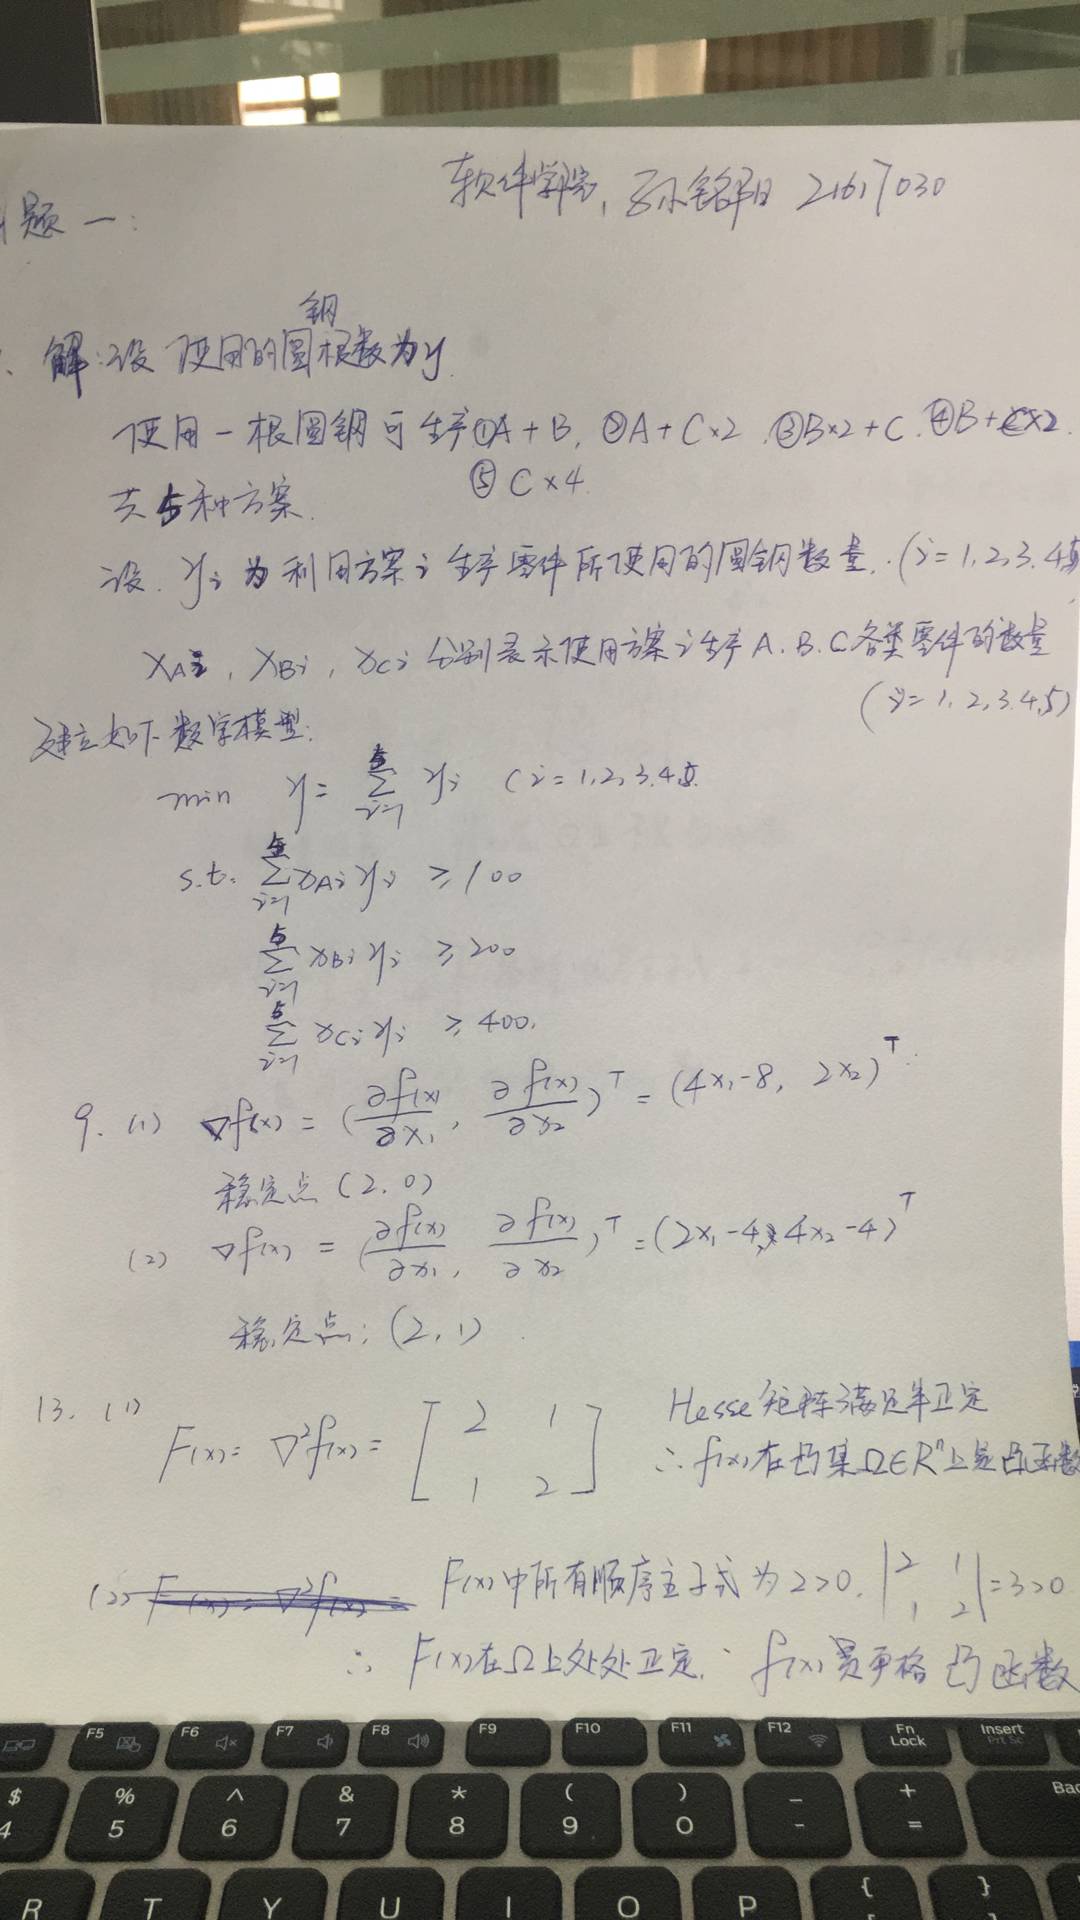 软件学院, 孙铭阳 21617030
题一:
解:设使用的圆钢根数为y.
使用一根圆钢可生产①A+B, ②A+C×2 ③B×2+C. ④B+C×2.
⑤C×4.
共5种方案.
设. yi为利用方案i生产零件所使用的圆钢数量. (i=1,2,3.4.5)
xAi, xBi, xCi 分别表示使用方案i生产A.B.C各类零件的数量
(i=1,2,3.4,5)
建立如下数学模型:
min y = ∑_{i=1}^{5} yi (i=1,2,3.4.5
s.t. ∑_{i=1}^{5} xAi yi ≥100
∑_{i=1}^{5} xBi yi ≥200
∑_{i=1}^{5} xCi yi ≥400.
9. (1) ∇f(x) = (∂f(x)/∂x₁, ∂f(x)/∂x₂)ᵀ = (4x₁-8, 2x₂)ᵀ
稳定点 (2.0)
(2) ∇f(x) = (∂f(x)/∂x₁, ∂f(x)/∂x₂)ᵀ = (2x₁-4, 4x₂-4)ᵀ
稳定点: (2,1)
13. (1) F(x) = ∇²f(x) = [2 1; 1 2] Hesse矩阵满足半正定
∴ f(x)在凸集Ω∈Rⁿ上是凸函数
(2) F(x)中所有顺序主子式为2>0. |2 1; 1 2|=3>0
∴ F(x)在Ω上处处正定. ∴ f(x)是严格凸函数
F5 F6 F7 F8 F9 F10 F11 F12 Fn Lock Insert Prt Sc
$ 4 % 5 ^ 6 & 7 * 8 ( 9 ) 0 _ - + = Bac
R T Y U I O P { }